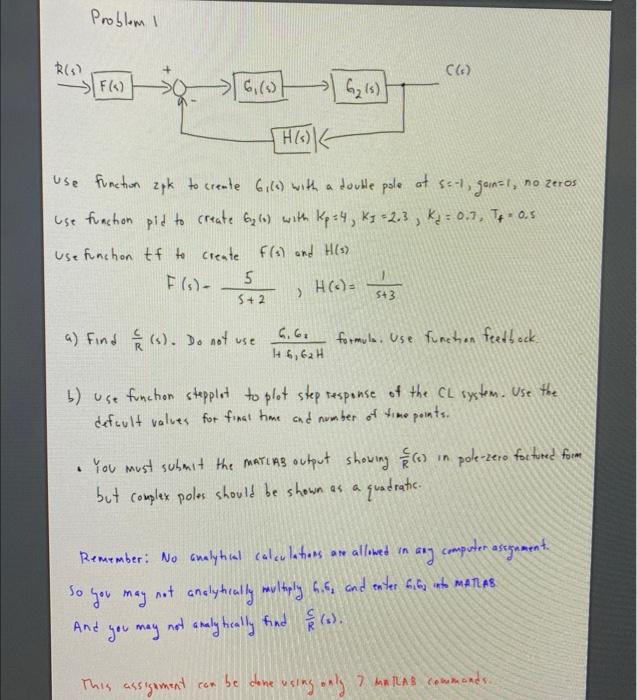 Problem 1
R(s) + C(s)
F(s) G₁(s) G₂(s)
-
H(s)
Use function zpk to create G₁(s) with a double pole at s=-1, gain=1, no zeros
Use function pid to create G₂(s) with Kp=4, KI=2.3, Kd=0.7, Tf=0.5
Use function tf to create F(s) and H(s)
F(s)= 5/(s+2) , H(s)= 1/(s+3)
a) Find C/R (s). Do not use G₁G₂/(1+G₁G₂H) formula. Use function feedback
b) use function stepplot to plot step response of the CL system. Use the
default values for final time and number of time points.
• You must submit the MATLAB output showing C/R (s) in pole-zero factored form
but complex poles should be shown as a quadratic.
Remember: No analytical calculations are allowed in any computer assignment.
So you may not analytically multiply G₁G₂ and enter G₁G₂ into MATLAB
And you may not analytically find C/R (s).
This assignment can be done using only 7 MATLAB commands.